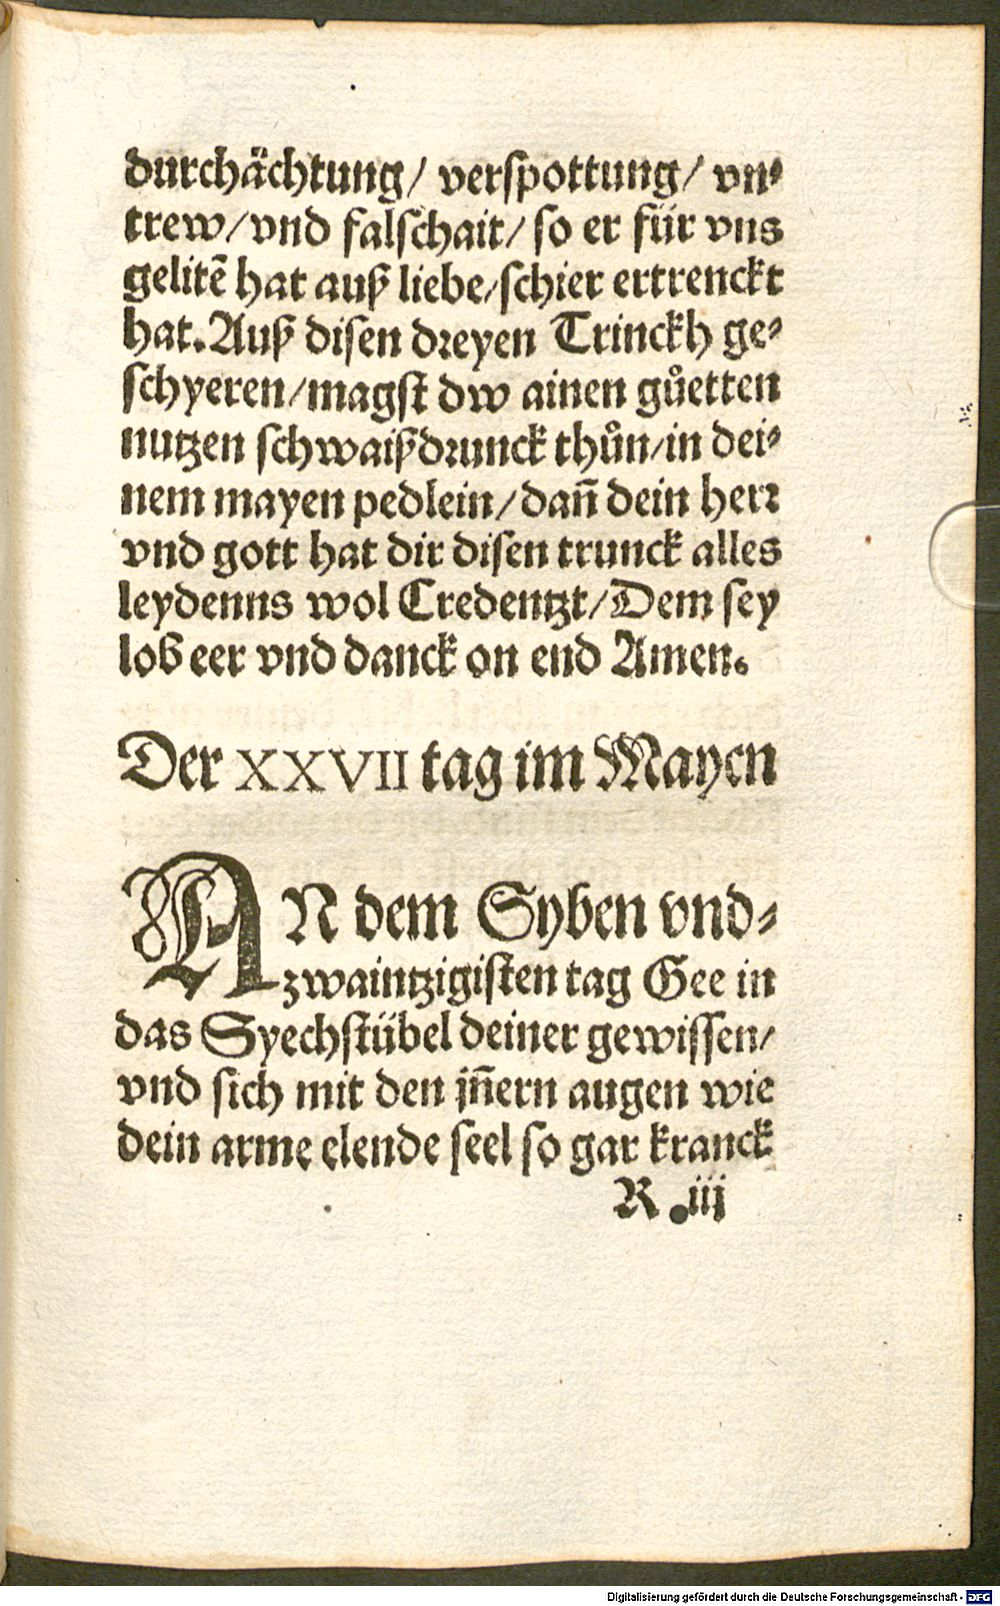 durchächtung/ verspottung/ vn⸗
trew/vnd falschait/ so er für vns
gelitē hat auß liebe/schier ertrenckt
hat. Auß disen dꝛeyen Trinckh ge⸗
schyeren/magst dw ainen gůetten
nutzen schwaißdꝛunck thůn/in dei⸗
nem mayen pedlein/dañ dein herꝛ
vnd gott hat dir disen trunck alles
leydenns wol Credentzt/Dem sey
lob eer vnd danck on end Amen.
Der XXVII tag im Mayen
AN dem Syben vnd⸗
zwaintzigisten tag Gee in
das Syechstübel deiner gewissen/
vnd sich mit den jñern augen wie
dein arme elende seel so gar kranck
R .iij
Digitalisierung gefördert durch die Deutsche Forschungsgemeinschaft - DFG